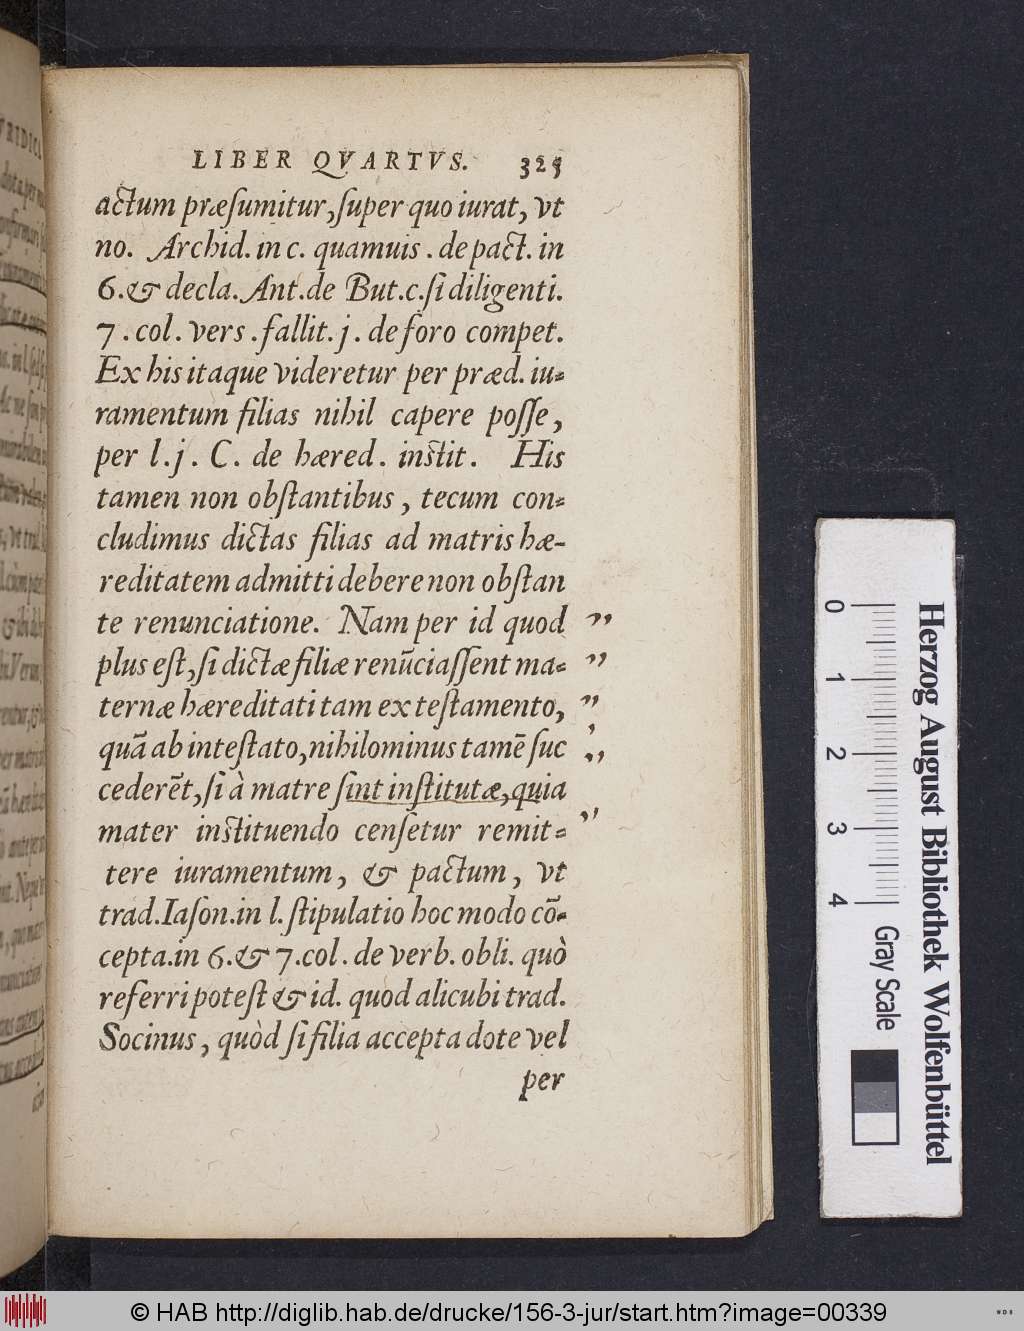 LIBER QVARTVS. 325
actum præsumitur, super quo iurat, vt
no. Archid. in c. quamuis . de pact. in
6. & decla. Ant. de But. c. si diligenti.
7 . col . vers . fallit . j . de foro compet.
Ex his itaque videretur per præd. iu-
ramentum filias nihil capere posse,
per l . j . C. de hæred . instit . His
tamen non obstantibus, tecum con-
cludimus dictas filias ad matris hæ-
reditatem admitti debere non obstan
te renunciatione. Nam per id quod
plus est, si dictæ filiæ renūciassent ma-
ternæ hæreditati tam ex testamento,
quā ab intestato, nihilominus tamē suc
cederēt, si à matre sint institutæ, quia
mater instituendo censetur remit-
tere iuramentum, & pactum, vt
trad. Iason. in l. stipulatio hoc modo cō-
cepta. in 6. & 7. col. de verb. obli. quò
referri potest & id. quod alicubi trad.
Socinus, quòd si filia accepta dote vel
per
0 1 2 3 4
Gray Scale
Herzog August Bibliothek Wolfenbüttel
© HAB http://diglib.hab.de/drucke/156-3-jur/start.htm?image=00339